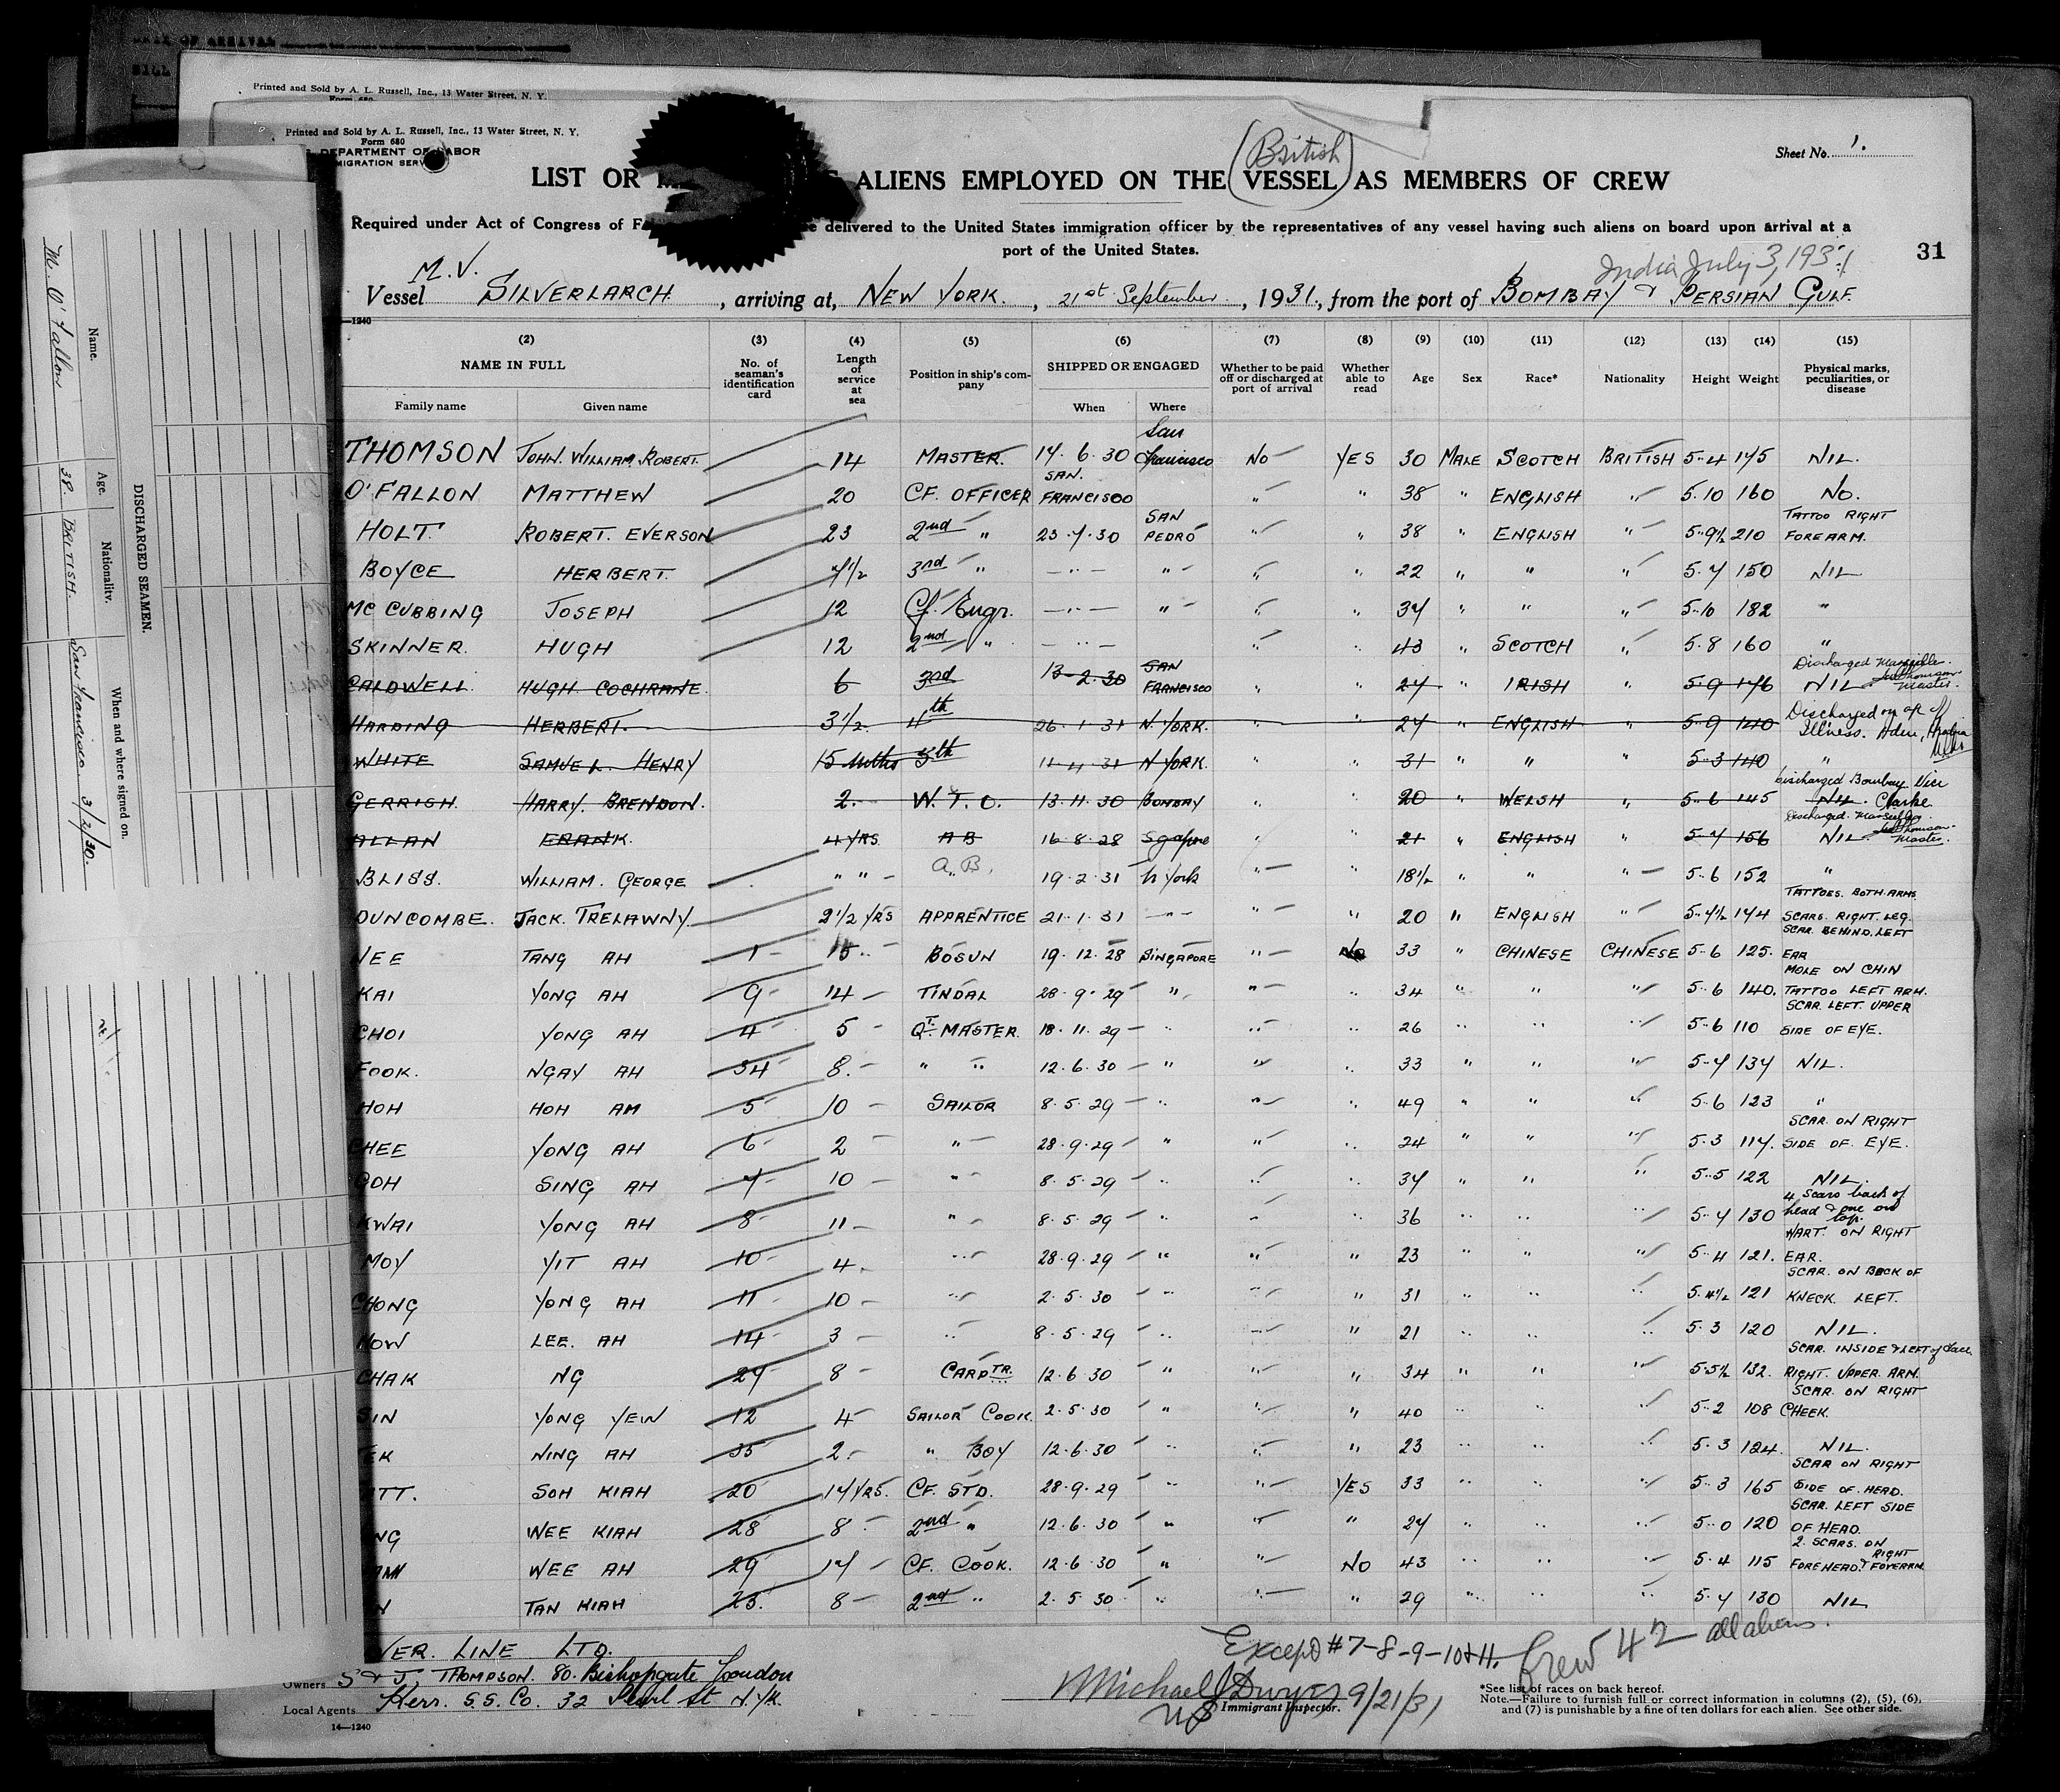 Printed and Sold by A. L. Russell, Inc., 13 Water Street, N. Y.
Printed and Sold by A. L. Russell, Inc., 13 Water Street, N. Y.
Form 680
DEPARTMENT OF LABOR
MIGRATION SERV
Sheet No. 1.
(British)
LIST OR ALIENS EMPLOYED ON THE VESSEL AS MEMBERS OF CREW
Required under Act of Congress of delivered to the United States immigration officer by the representatives of any vessel having such aliens on board upon arrival at a
port of the United States.
31
India July 3, 1931
M.V.
Vessel SILVERLARCH, arriving at, NEW YORK., 21st September, 1931, from the port of BOMBAY & PERSIAN GULF.
(2) (3) (4) (5) (6) (7) (8) (9) (10) (11) (12) (13) (14) (15)
NAME IN FULL No. of seaman's identification card Length of service at sea Position in ship's company SHIPPED OR ENGAGED Whether to be paid off or discharged at port of arrival Whether able to read Age Sex Race* Nationality Height Weight Physical marks, peculiarities, or disease
Family name Given name When Where
THOMSON JOHN. WILLIAM. ROBERT. 14 MASTER. 14.6.30 San Francisco No YES 30 MALE SCOTCH BRITISH 5-4 145 NIL.
O'FALLON MATTHEW 20 CF. OFFICER SAN. FRANCISCO " " 38 " ENGLISH " 5.10 160 No.
HOLT ROBERT. EVERSON 23 2nd " 23.7.30 SAN PEDRO " " 38 " ENGLISH " 5-9½ 210 TATTOO RIGHT FOREARM.
BOYCE HERBERT. 3rd " " " " " 22 " " " 5.7 150 NIL
MC CUBBING JOSEPH 12 Cf. Engr. " " " " 37 " " " 5-10 182 "
SKINNER. HUGH 12 2nd " " " " 43 " SCOTCH " 5.8 160 "
CALDWELL. HUGH COCHRANE. 6 3rd 13-2.30 SAN FRANCISCO " " 27 " IRISH " 5-9 176 NIL. Discharged Marseille. Master.
HARDING HERBERT. 3½ 4th 26.1.31 N. YORK. " " 27 " ENGLISH " 5-9 140 Discharged Illness. Aden,
WHITE SAMUEL. HENRY 15 mths 5th 11.4.31 N YORK. " " 31 " " " 5-3 140 "
GERRISH. HARRY. BRENDON. 2. W.T.O. 13.11.30 BOMBAY " " 20 " WELSH " 5-6 145 NIL. discharged Bombay Vice Clarke
ALLAN FRANK. 4 YRS AB 16.8.28 Sgapore " " 21 " ENGLISH " 5-7 156 NIL. Discharged. Master.
BLISS. WILLIAM. GEORGE " " A.B. 19.2.31 N York " " 18½ " " " 5-6 152 "
DUNCOMBE. JACK. TRELAWNY. 2½ YRS APPRENTICE 21.1.31 " " " 20 " ENGLISH " 5-7½ 144 TATTOES. BOTH. ARMS. SCARS. RIGHT. LEG.
NEE TANG AH 1 15 BOSUN 19.12.28 SINGAPORE " No 33 " CHINESE CHINESE 5-6 125. SCAR. BEHIND. LEFT EAR
KAI YONG AH 9 14 TINDAL 28.9.29 " " " 34 " " " 5-6 140. MOLE ON CHIN TATTOO LEFT ARM.
CHOI YONG AH 4 5 QT. MASTER. 18.11.29 " " " 26 " " " 5-6 110 SCAR. LEFT. UPPER SIDE OF EYE.
FOOK. NGAY AH 34 8. " " 12.6.30 " " " 33 " " " 5-7 134 NIL.
HOH HOH AM 5 10 SAILOR 8.5.29 " " " 49 " " " 5-6 123 "
CHEE YONG AH 6 2 " 28.9.29 " " " 24 " " " 5.3 117. SCAR. ON RIGHT SIDE OF. EYE.
SING AH 7 10 " 8.5.29 " " " 37 " " " 5.5 122 NIL.
KWAI YONG AH 8 11 " 8.5.29 " " " 36 " " " 5-7 130 4 Scars back of head & one on top.
MOY YIT AH 10 4. " 28.9.29 " " " 23 " " " 5-4 121. WART. ON RIGHT EAR.
CHONG YONG AH 11 10 " 2.5.30 " " " 31 " " " 5.4½ 121 SCAR. ON BACK OF KNECK. LEFT.
HOW LEE. AH 14 3 " 8.5.29 " " " 21 " " " 5.3 120 NIL.
CHAK NG 27 8 CARPTR. 12.6.30 " " " 34 " " " 5-5½ 132. SCAR. INSIDE & LEFT of face. RIGHT. UPPER. ARM.
SIN YONG YEW 12 4 SAILOR COOK. 2.5.30 " " " 40 " " " 5.2 108 SCAR. ON RIGHT CHEEK.
EK NING AH 35 2. " BOY 12.6.30 " " " 23 " " " 5.3 124. NIL.
TT. SOH KIAH 20 17 YRS. CF. STD. 28.9.29 " " YES 33 " " " 5.3 165 SCAR ON RIGHT SIDE OF. HEAD.
NG WEE KIAH 28 8 2nd " 12.6.30 " " " 27 " " " 5.0 120 SCAR. LEFT SIDE OF HEAD.
WEE AH 29 17 CF. COOK. 12.6.30 " " NO 43 " " " 5.4 115 2. SCARS. ON FOREHEAD. & RIGHT FOREARM.
N TAN KIAH 25. 8 2nd " 2.5.30 " " " 29 " " " 5.7 130 NIL
VER. LINE LTD.
Owners S & J. THOMPSON. 80. Bishopgate London
Local Agents Kerr. S.S. Co. 32 Pearl St N.Yk.
14—1240
Except #7-8-9-10&11. Crew 42 all aliens.
Michael J Dwyer 9/21/31
Immigrant Inspector.
*See list of races on back hereof.
Note.—Failure to furnish full or correct information in columns (2), (5), (6),
and (7) is punishable by a fine of ten dollars for each alien. See other side.
DISCHARGED SEAMEN.
Name. Age. Nationality. When and where signed on.
M. O'Fallon 38. BRITISH. San Francisco 3/2/30.